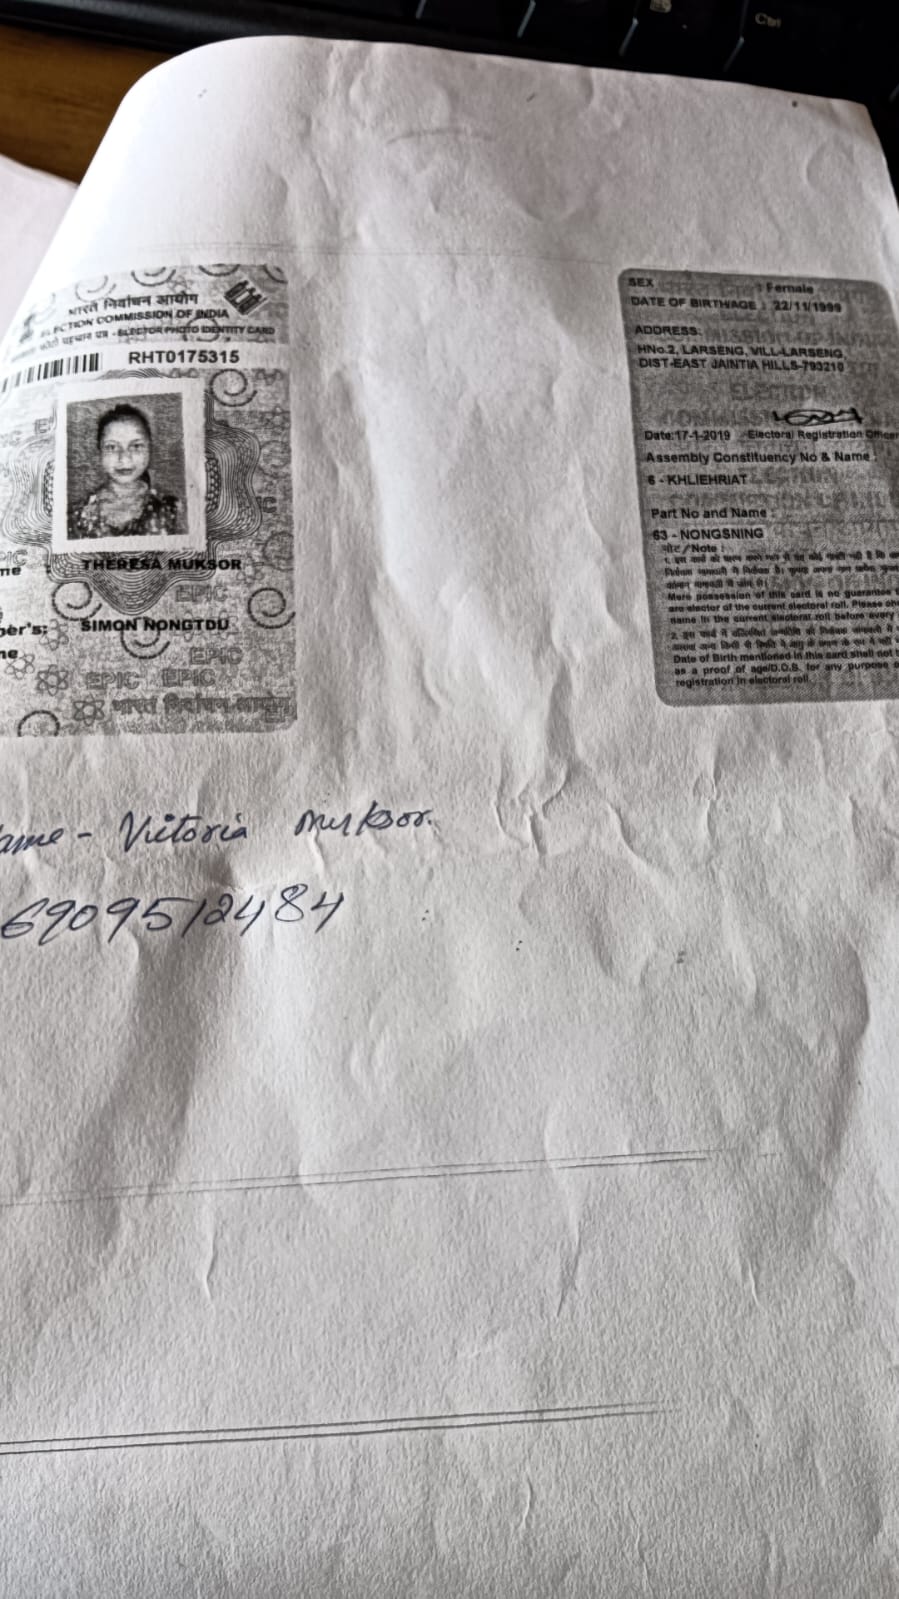 भारत निर्वाचन आयोग
ELECTION COMMISSION OF INDIA
पहचान पत्र - ELECTOR PHOTO IDENTITY CARD
RHT0175315
THERESA MUKSOR
SIMON NONGTDU
EPIC
EPIC
EPIC EPIC
भारत निर्वाचन आयोग
SEX : Female
DATE OF BIRTH/AGE : 22/11/1999
ADDRESS:
HNo.2, LARSENG, VILL-LARSENG,
DIST-EAST JAINTIA HILLS-793210
Date:17-1-2019 Electoral Registration Officer
Assembly Constituency No & Name :
6 - KHLIEHRIAT
Part No and Name :
63 - NONGSNING
नोट/Note :
Mere possession of this card is no guarantee
are elector of the current electoral roll. Please
name in the current electoral roll before every
Date of Birth mentioned in this card shall not
as a proof of age/D.O.B. for any purpose
registration in electoral roll.
ame - Victoria Muksor.
6909512484
Ctrl